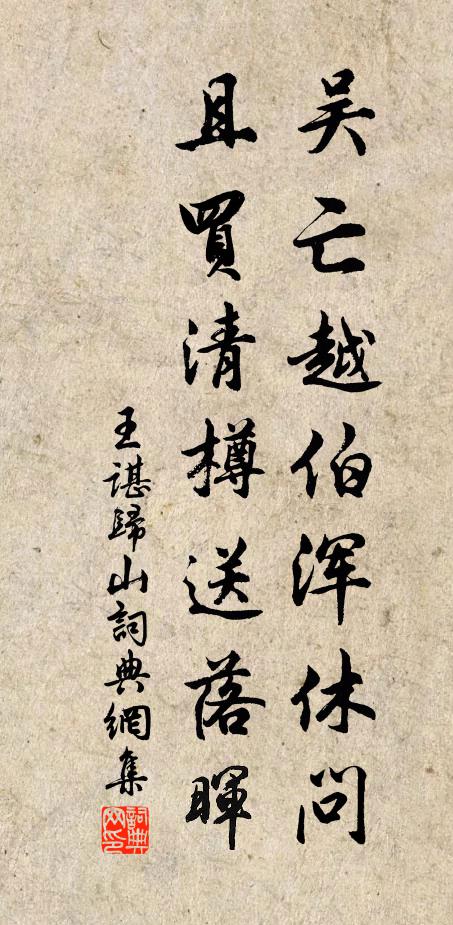 吴亡越伯浑休問
且買清樽送落暉
王諶歸山詞典網集
詞典网印